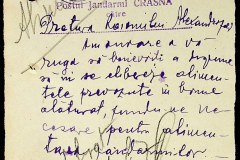 Postul Jandarmi CRASNA
către
Pretura Racomiteu Alexandru
Am onoare a vă
ruga să binevoiți a dispune
să mi se elibereze alimen-
tele prevăzute în bonul
alăturat, fiindu-ne ne-
cesare pentru alimen-
tarea jandarmilor